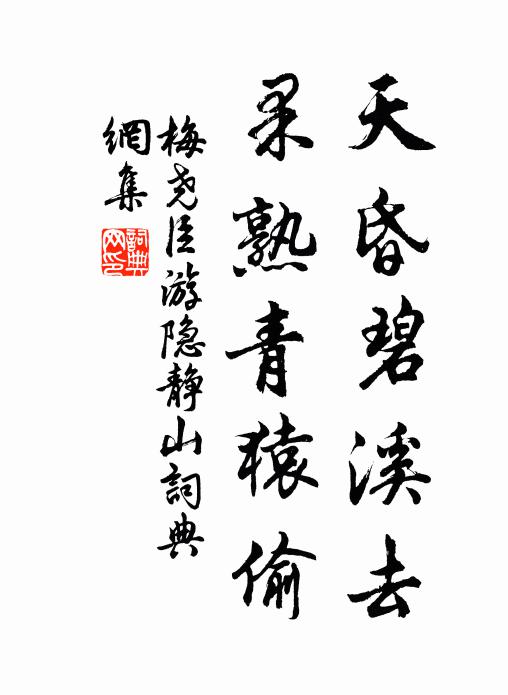 天昏碧溪去
果熟青猿偷
梅尧臣游隐静山詞典
網集
詞典网印